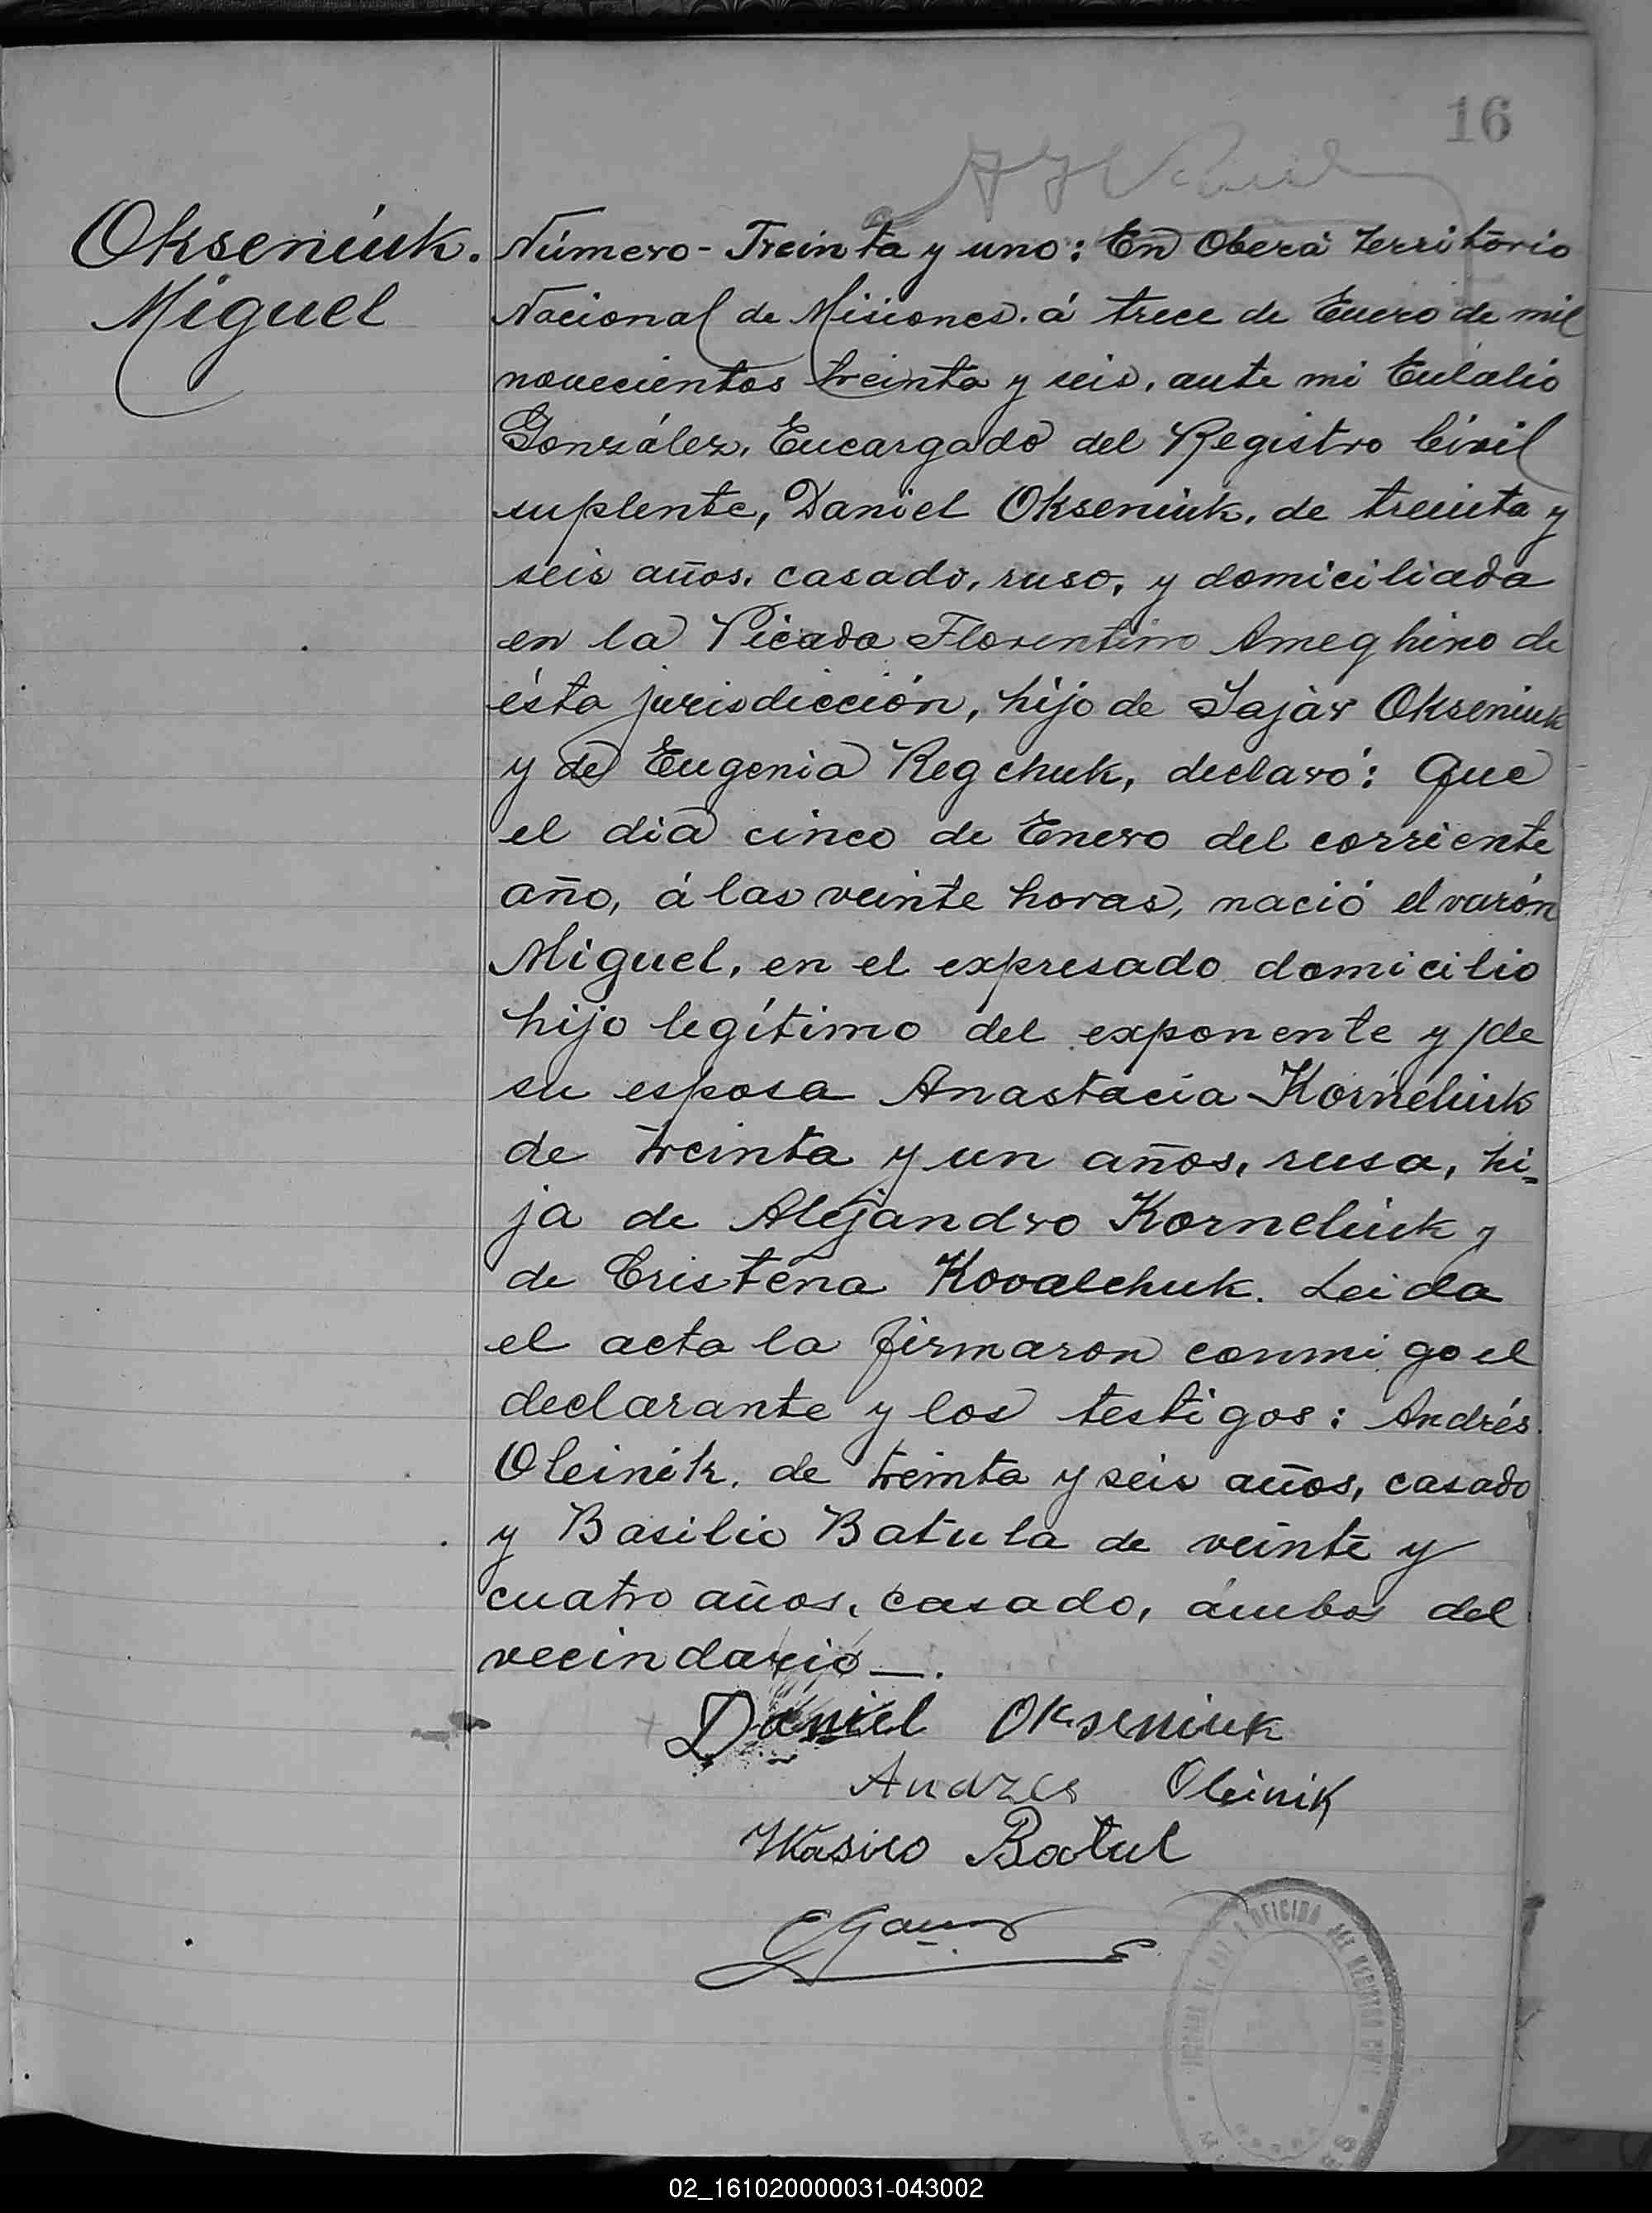 16
Okseniuk.
Miguel
Número - Treinta y uno: En Oberá territorio
Nacional de Misiones. á trece de Enero de mil
novecientos treinta y seis, ante mi Eulalio
González, Encargado del Registro Civil
suplente, Daniel Okseniuk, de treinta y
seis años, casado, ruso, y domiciliada
en la Picada Florentino Ameghino de
ésta jurisdicción, hijo de Sajár Okseniuk
y de Eugenia Regchuk, declaró: Que
el dia cinco de Enero del corriente
año, á las veinte horas, nació el varón
Miguel, en el expresado domicilio
hijo legítimo del exponente y de
su esposa Anastacia Korneliuk
de treinta y un años, rusa, hi=
ja de Alejandro Korneliuk y
de Cristena Kovalchuk. Leida
el acta la firmaron conmigo el
declarante y los testigos: Andrés
Oleinik, de treinta y seis años, casado
y Basilio Batula de veinte y
cuatro años, casado, ámbos del
vecindario —.
Daniel Okseniuk
Andres Oleinik
Wasilo Batul
02_161020000031-043002